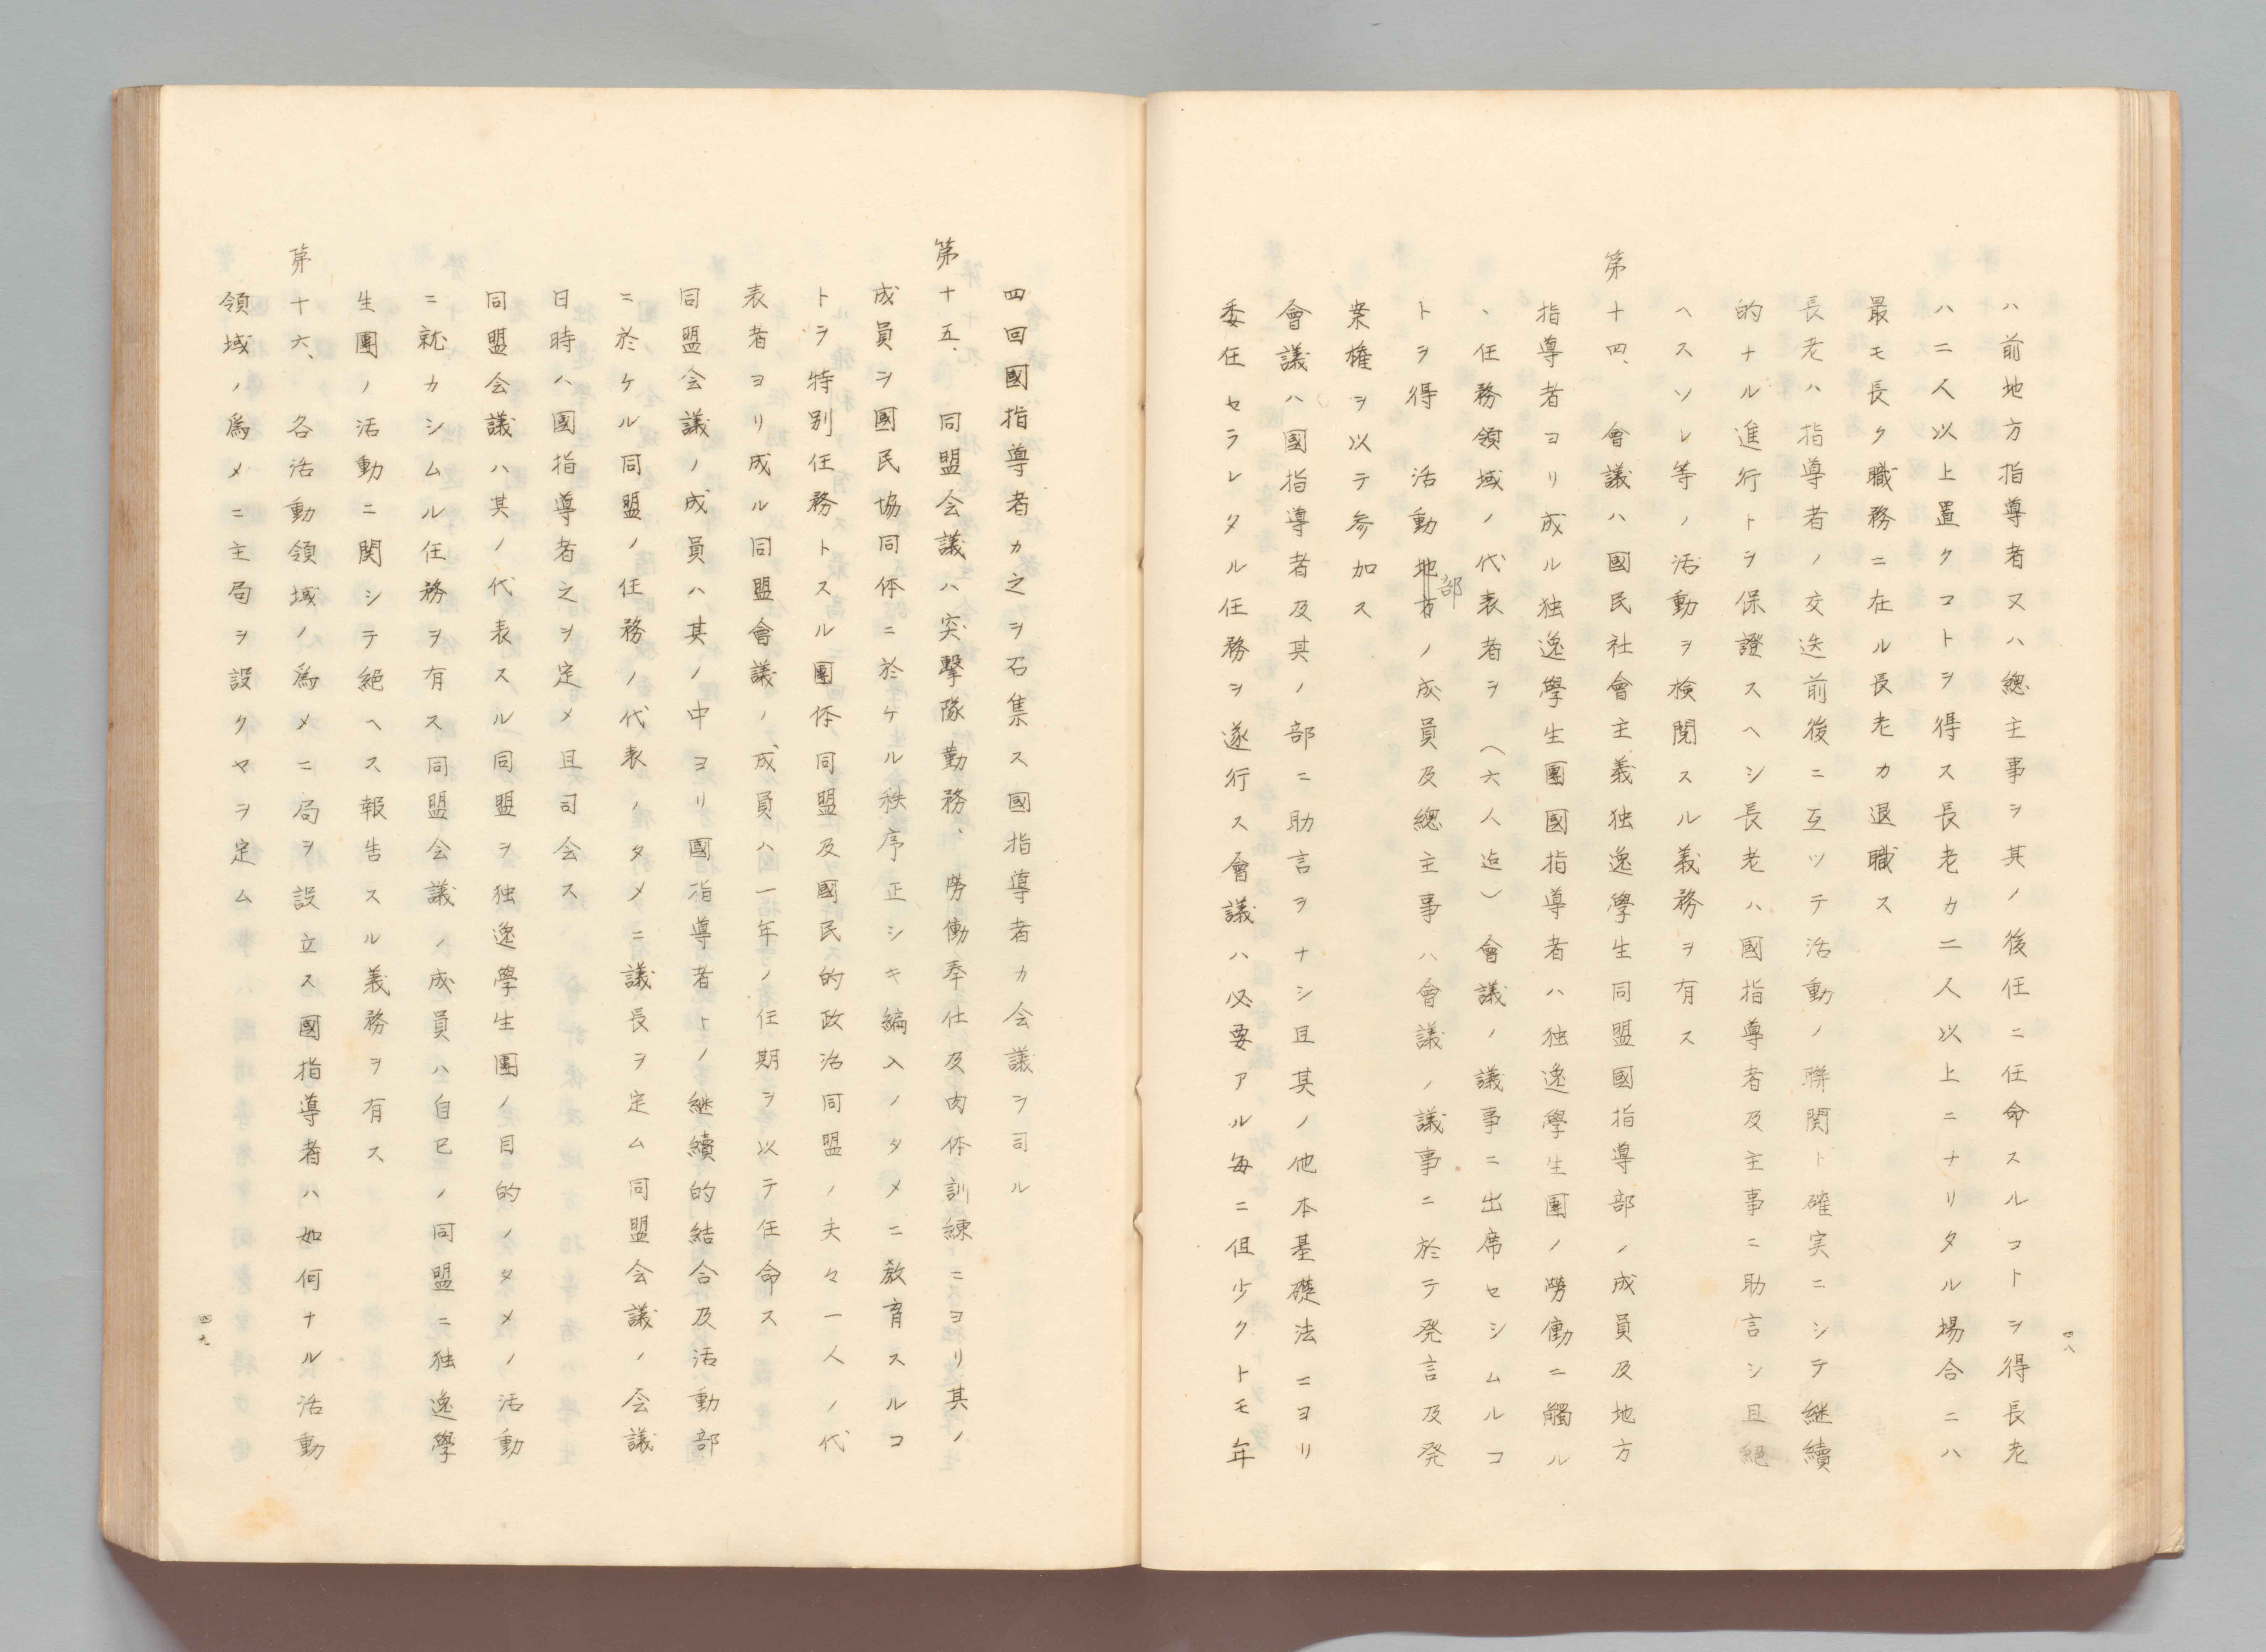 ハ前地方指導者又ハ總主事ヲ其ノ後任ニ任命スルコトヲ得長老
ハ二人以上置クコトヲ得ス長老カ二人以上ニナリタル場合ニハ
最モ長ク職務ニ在ル長老カ退職ス
長老ハ指導者ノ交迭前後ニ互ツテ活動ノ聯関ト確実ニシテ継續
的ナル進行トヲ保證スヘシ長老ハ國指導者及主事ニ助言シ且絕
ヘスソレ等ノ活動ヲ検閲スル義務ヲ有ス
第十四、會議ハ國民社會主義独逸學生同盟國指導部ノ成員及地方
指導者ヨリ成ル独逸學生團國指導者ハ独逸學生團ノ勞働ニ觸ル
、任務領域ノ代表者ヲ(六人迄)會議ノ議事ニ出席セシムルコ
トヲ得 活動地方ノ成員及總主事ハ會議ノ議事ニ於テ発言及発
部
案権ヲ以テ参加ス
會議ハ國指導者及其ノ部ニ助言ヲナシ且其ノ他本基礎法ニヨリ
委任セラレタル任務ヲ遂行ス會議ハ必要アル毎ニ但少クトモ年
四八
四回國指導者カ之ヲ召集ス國指導者カ会議ヲ司ル
第十五、同盟会議ハ突撃隊勤務、勞働奉仕及肉体訓練ニヨリ其ノ
成員ヲ國民協同体ニ於ケル秩序正シキ編入ノタメニ教育スルコ
トヲ特別任務トスル團体同盟及國民的政治同盟ノ夫々一人ノ代
表者ヨリ成ル同盟會議ノ成員ハ一年ノ任期ヲ以テ任命ス
同盟会議ノ成員ハ其ノ中ヨリ國指導者トノ継續的結合及活動部
ニ於ケル同盟ノ任務ノ代表ノタメニ議長ヲ定ム同盟会議ノ会議
日時ハ國指導者之ヲ定メ且司会ス
同盟会議ハ其ノ代表スル同盟ヲ独逸學生團ノ目的ノタメノ活動
ニ就カシムル任務ヲ有ス同盟会議ノ成員ハ自己ノ同盟ニ独逸學
生團ノ活動ニ関シテ絕ヘス報告スル義務ヲ有ス
第十六、各活動領域ノ爲メニ局ヲ設立ス國指導者ハ如何ナル活動
領域ノ爲メニ主局ヲ設クヤヲ定ム
四九